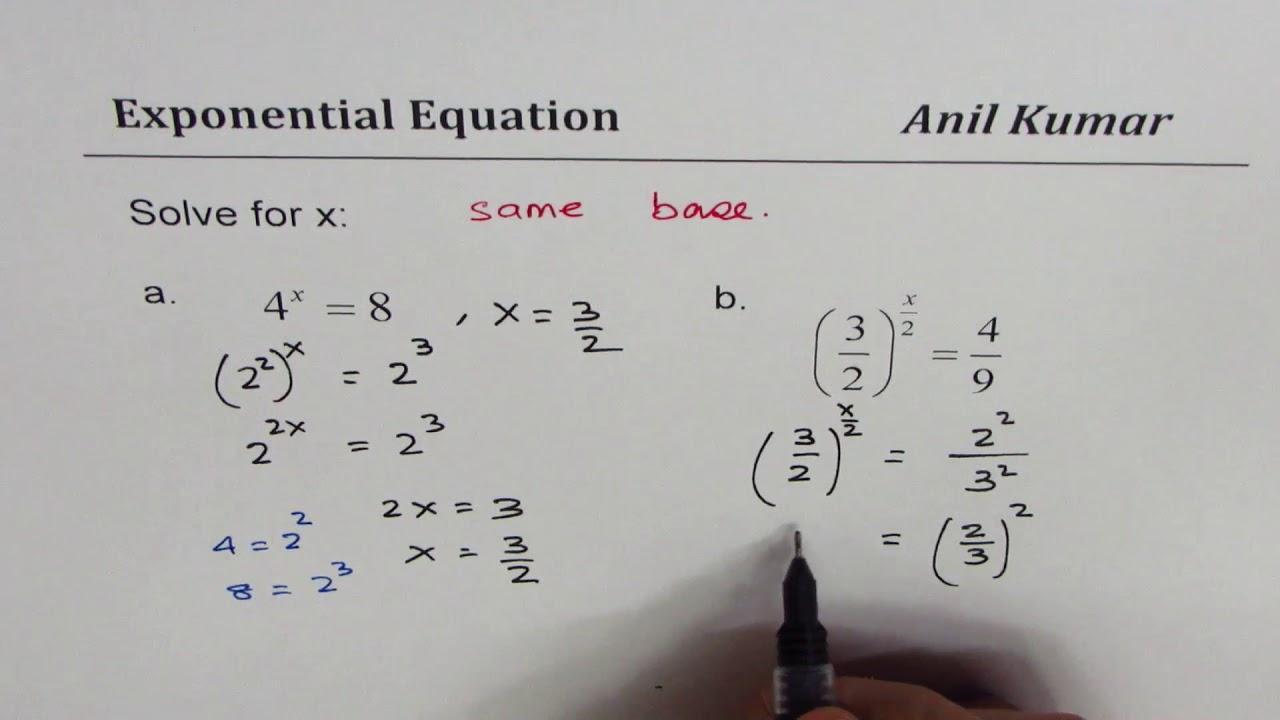 Exponential Equation Anil Kumar
Solve for x: same base.
a. 4^x = 8 , x = 3/2
(2^2)^x = 2^3
2^2x = 2^3
2x = 3
x = 3/2
4 = 2^2
8 = 2^3
b. (3/2)^(x/2) = 4/9
(3/2)^(x/2) = 2^2/3^2
= (2/3)^2